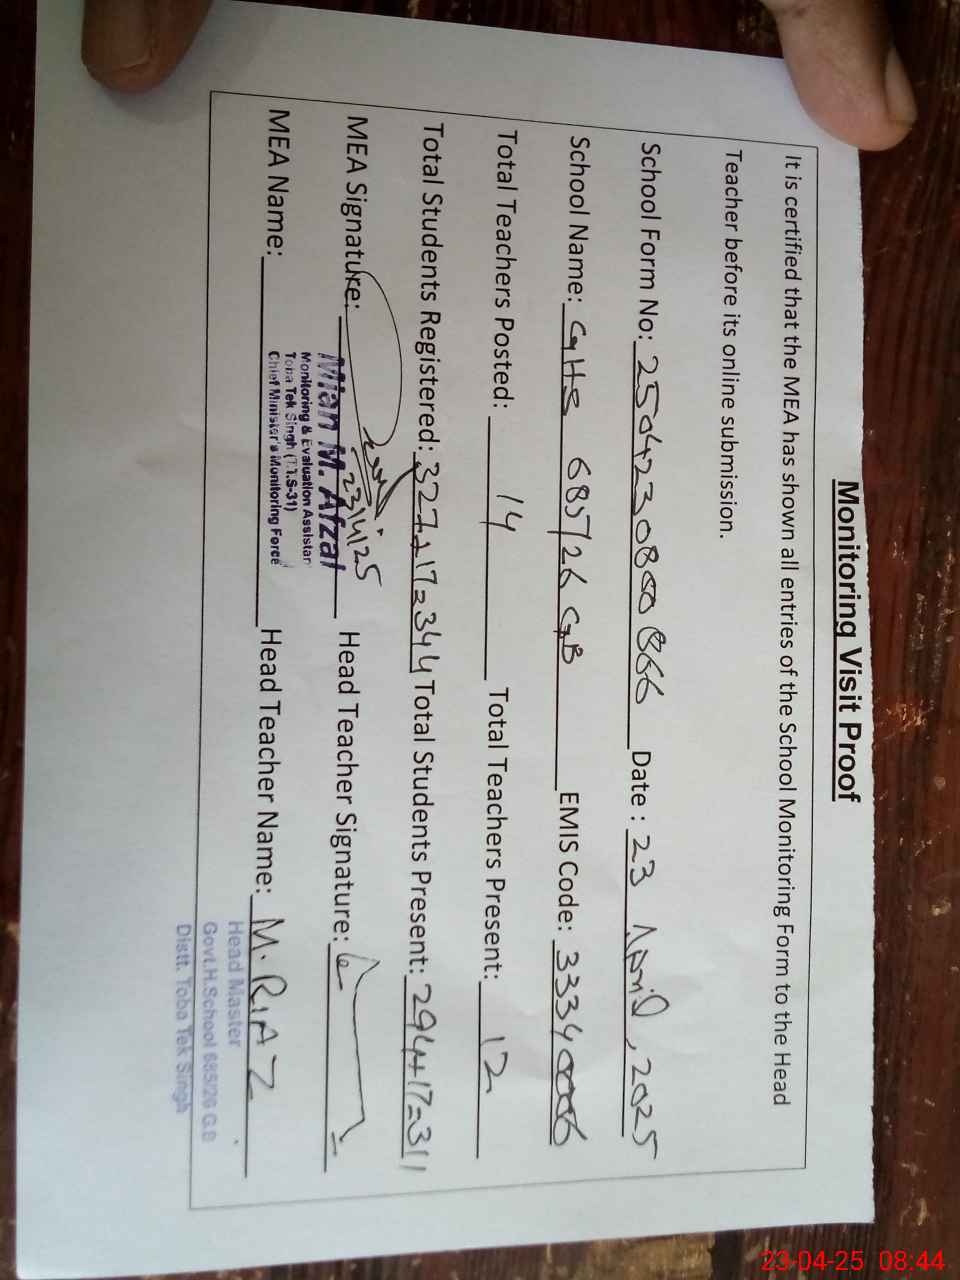 Monitoring Visit Proof
It is certified that the MEA has shown all entries of the School Monitoring Form to the Head
Teacher before its online submission.
School Form No: 250423 0800 866 Date : 23 April, 2025
School Name: GHS 685/26 GB EMIS Code: 33340006
Total Teachers Posted: 14 Total Teachers Present: 12
Total Students Registered: 327+17=344 Total Students Present: 294+17=311
MEA Signature: 23/4/25 Head Teacher Signature:
Mian M. Afzal
Monitoring & Evaluation Assistan
Toba Tek Singh (T.T.S-31)
Chief Minister's Monitoring Force
MEA Name: Head Teacher Name: M. RIAZ
Head Master
Govt.H.School 685/26 G.B
Distt. Toba Tek Singh
23-04-25 08:44